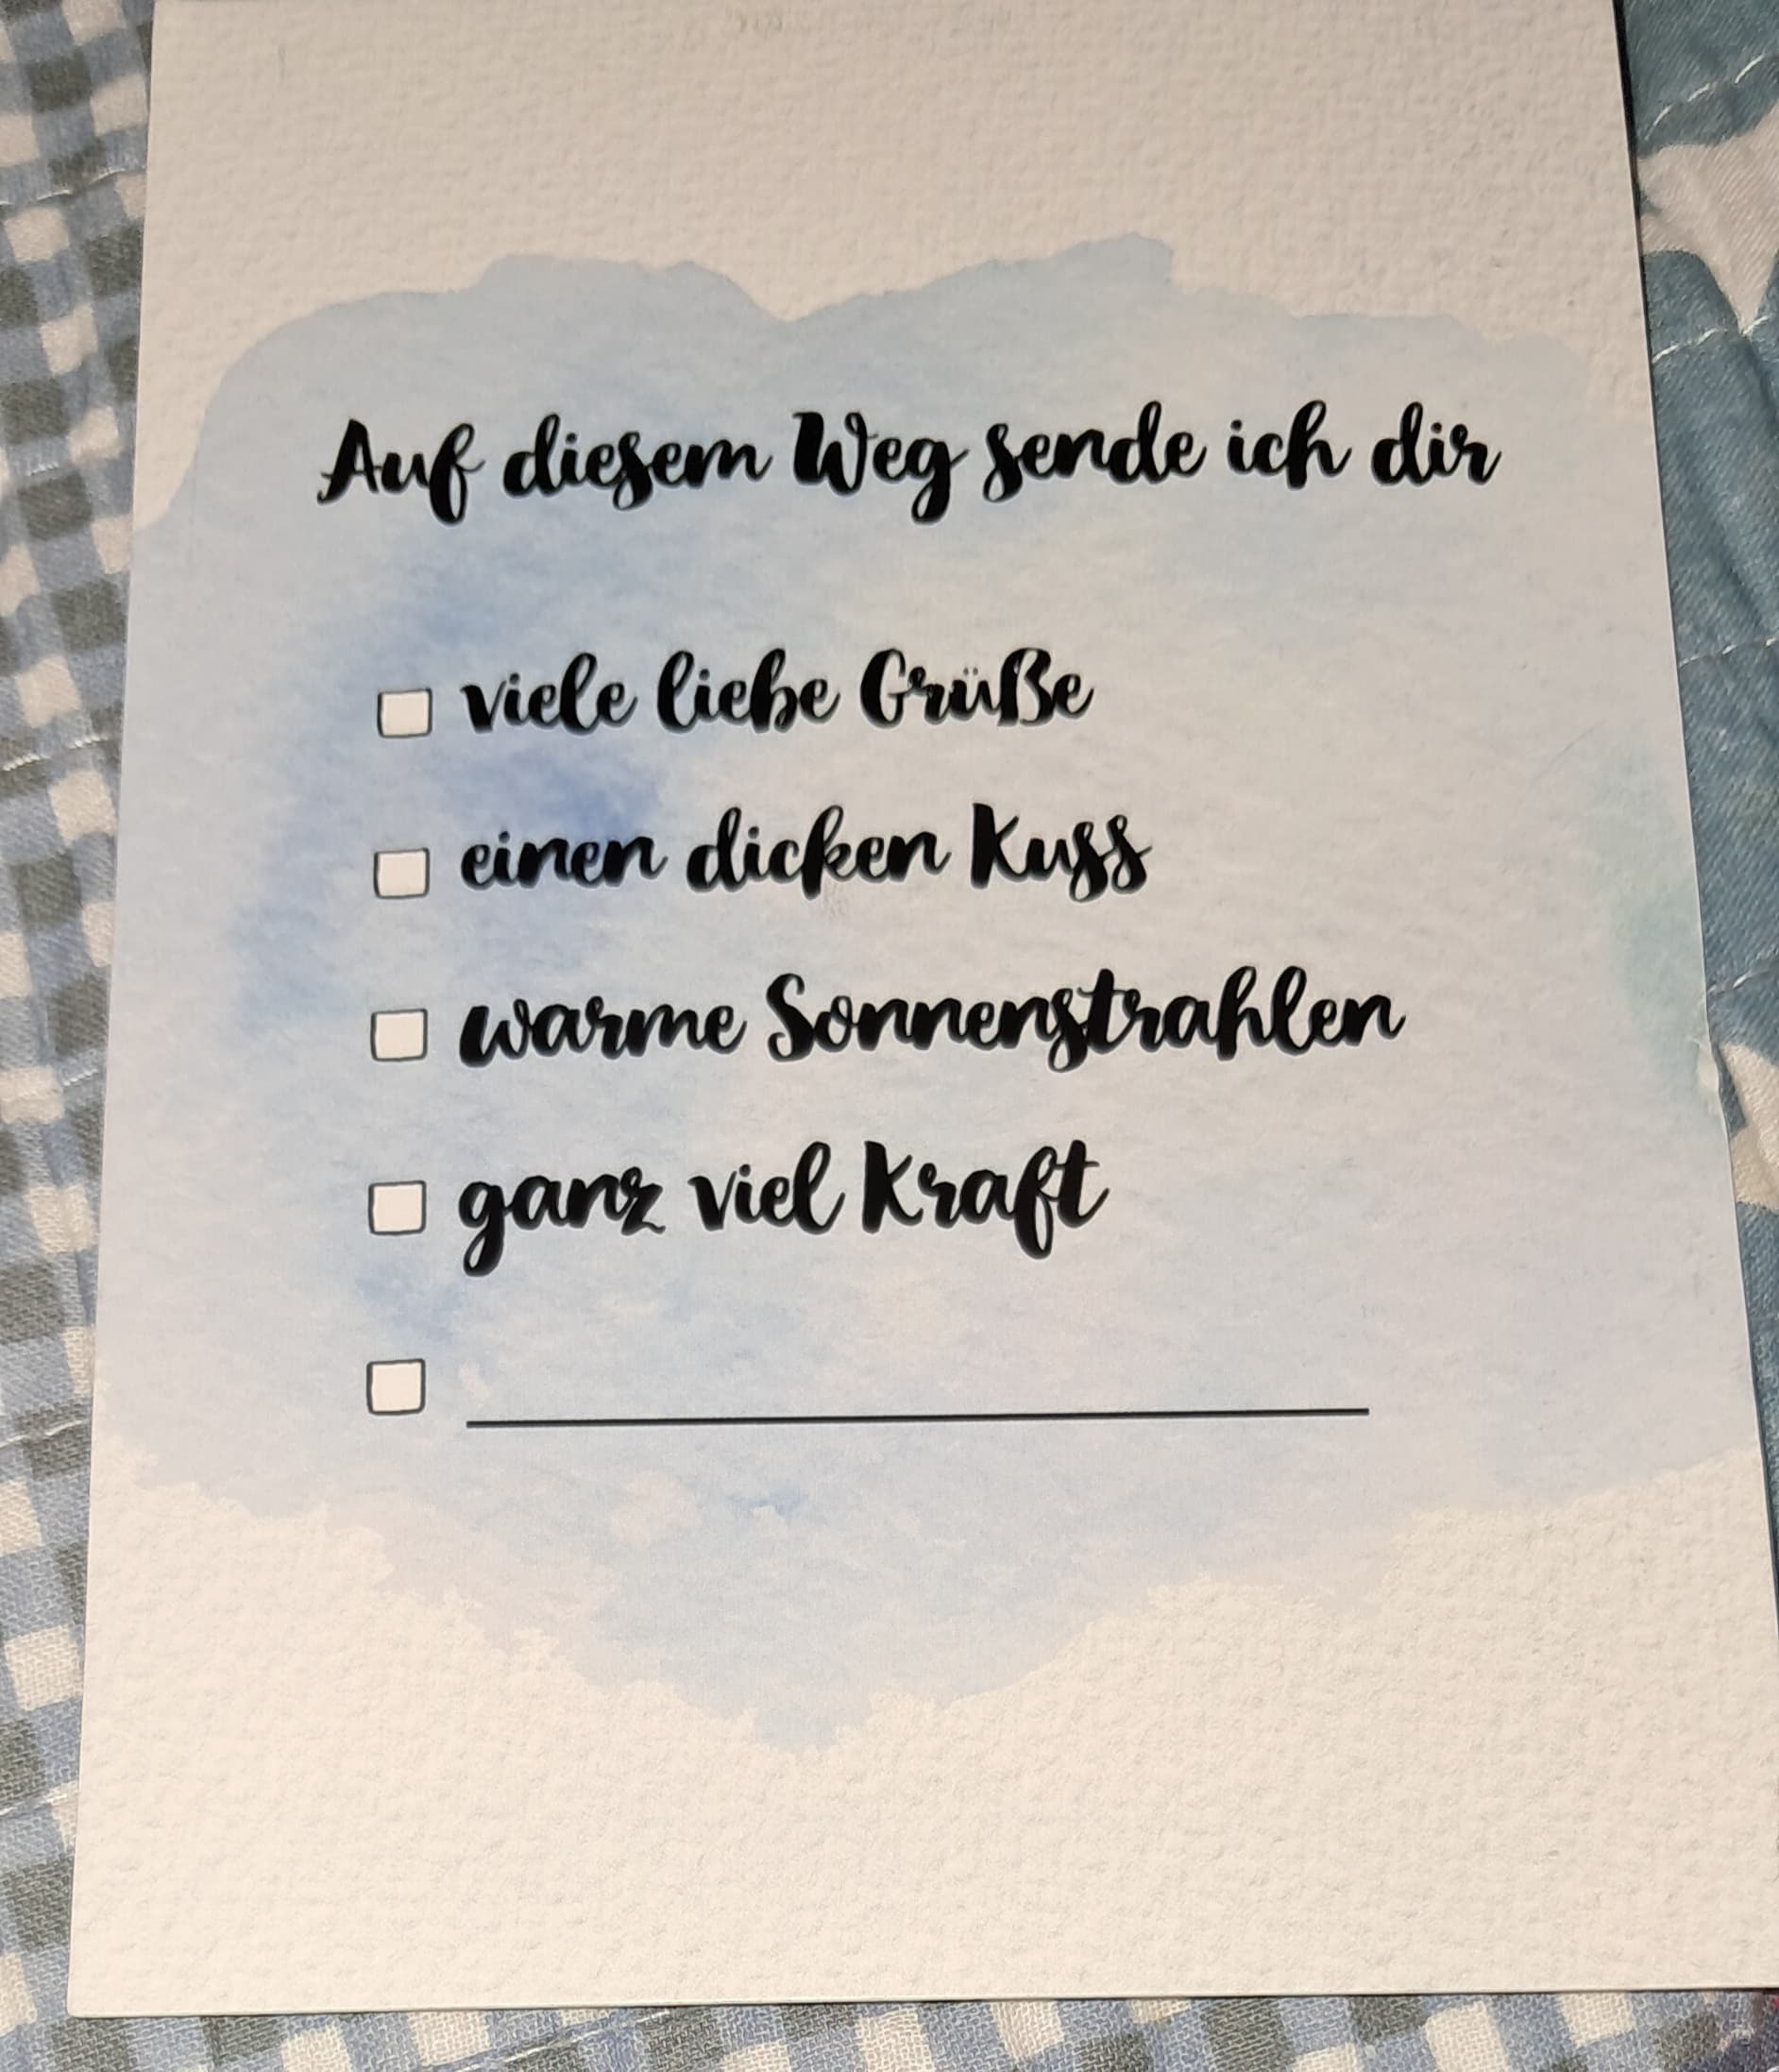 Auf diesem Weg sende ich dir
viele liebe Grüße
einen dicken Kuss
warme Sonnenstrahlen
ganz viel Kraft